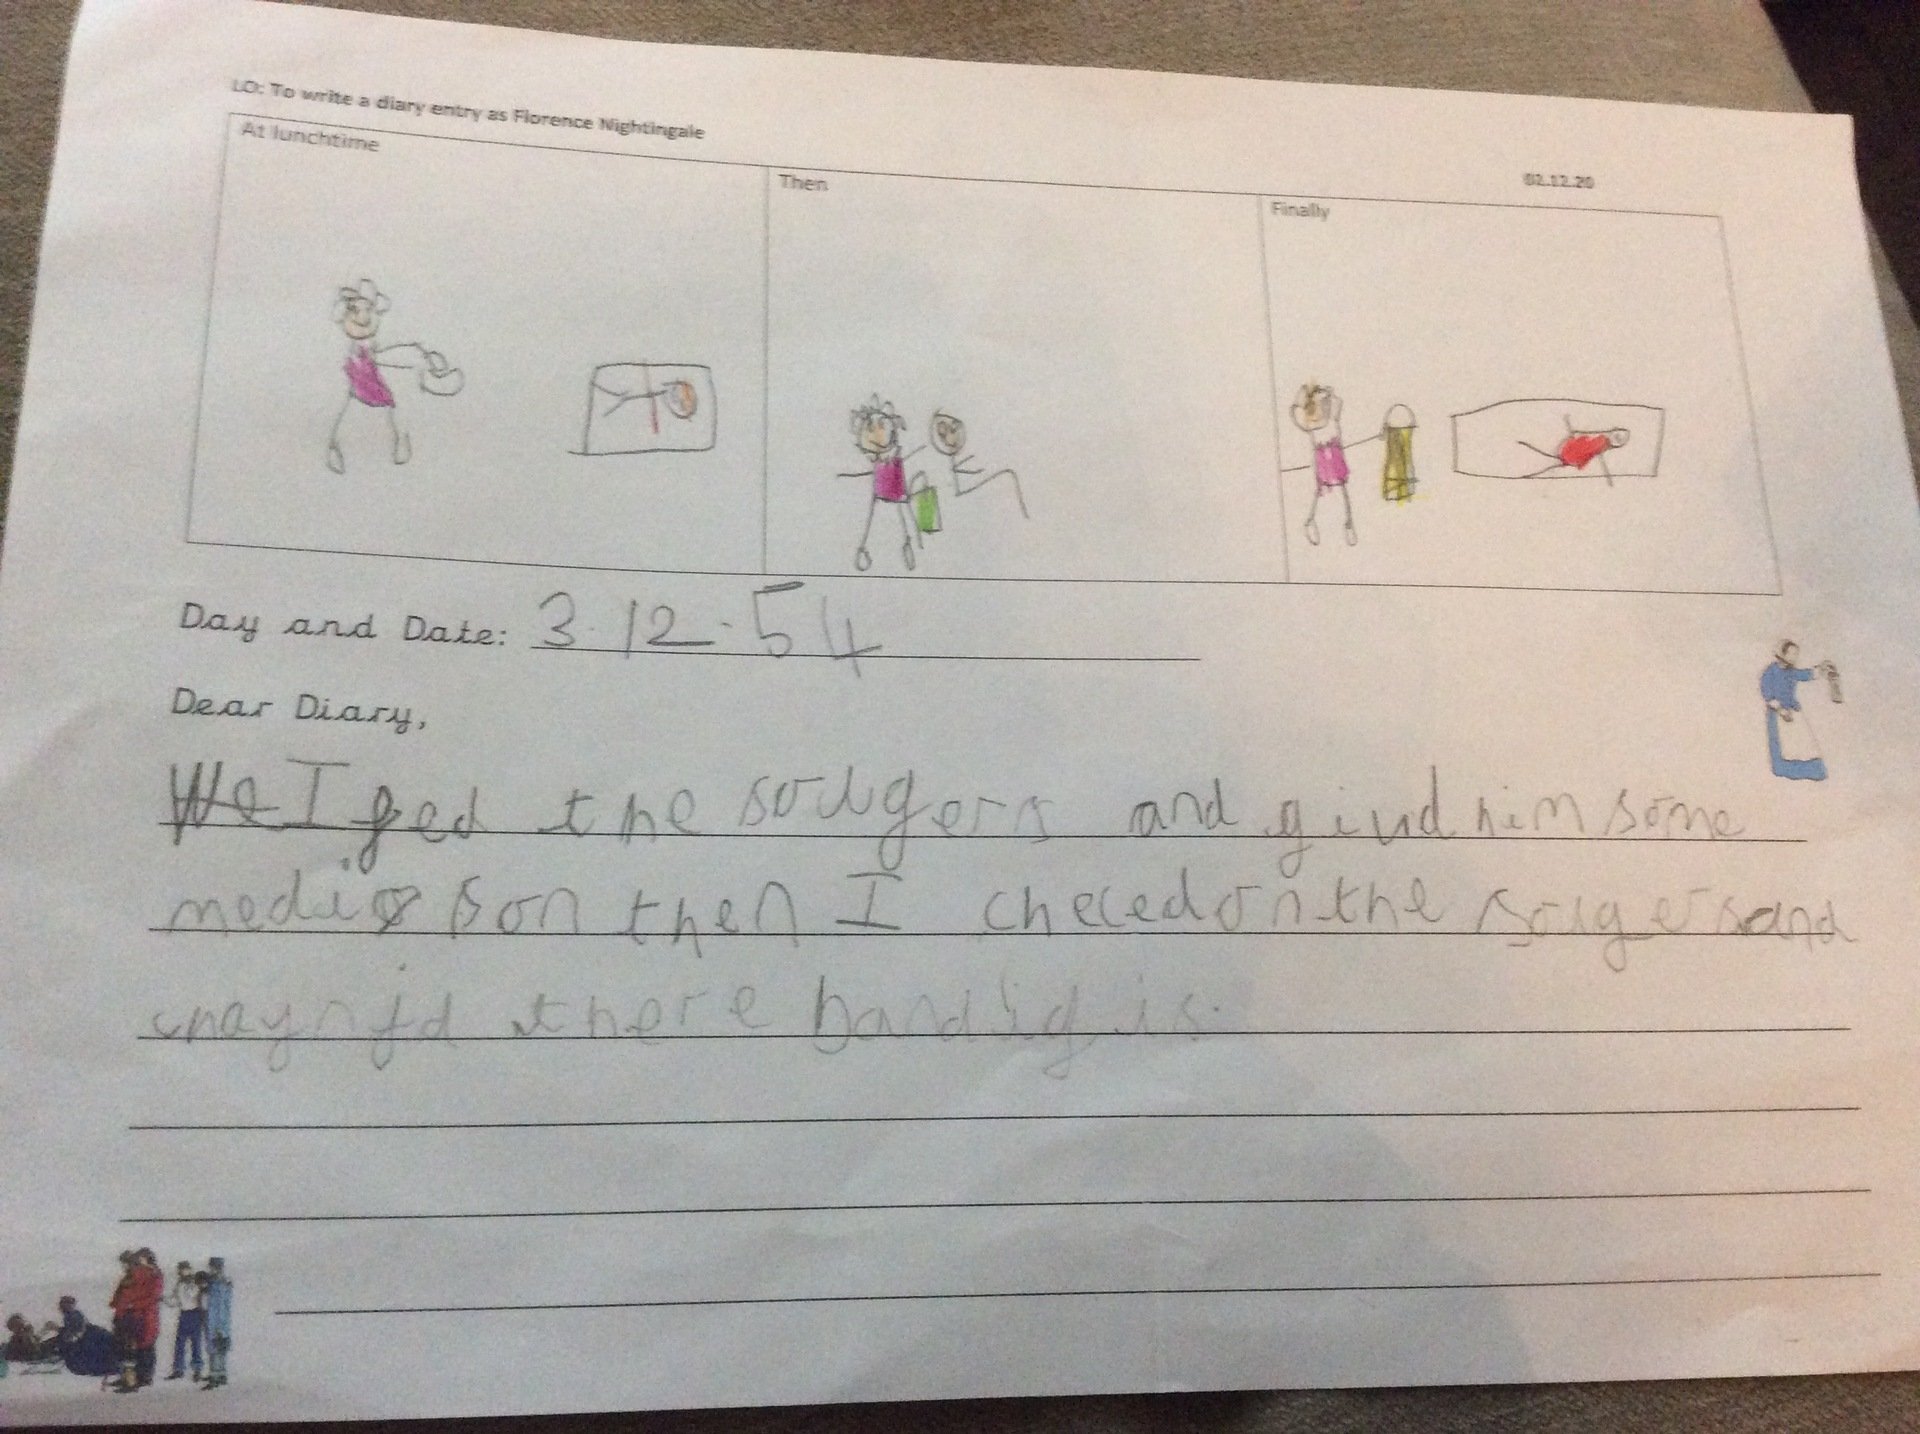 LO: To write a diary entry as Florence Nightingale
02.12.20
At lunchtime
Then
Finally
Day and Date: 3.12.54
Dear Diary,
We I fed the soulgers and giud him some
medi son then I checed on the soulgers and
chaynjd there bandigis.